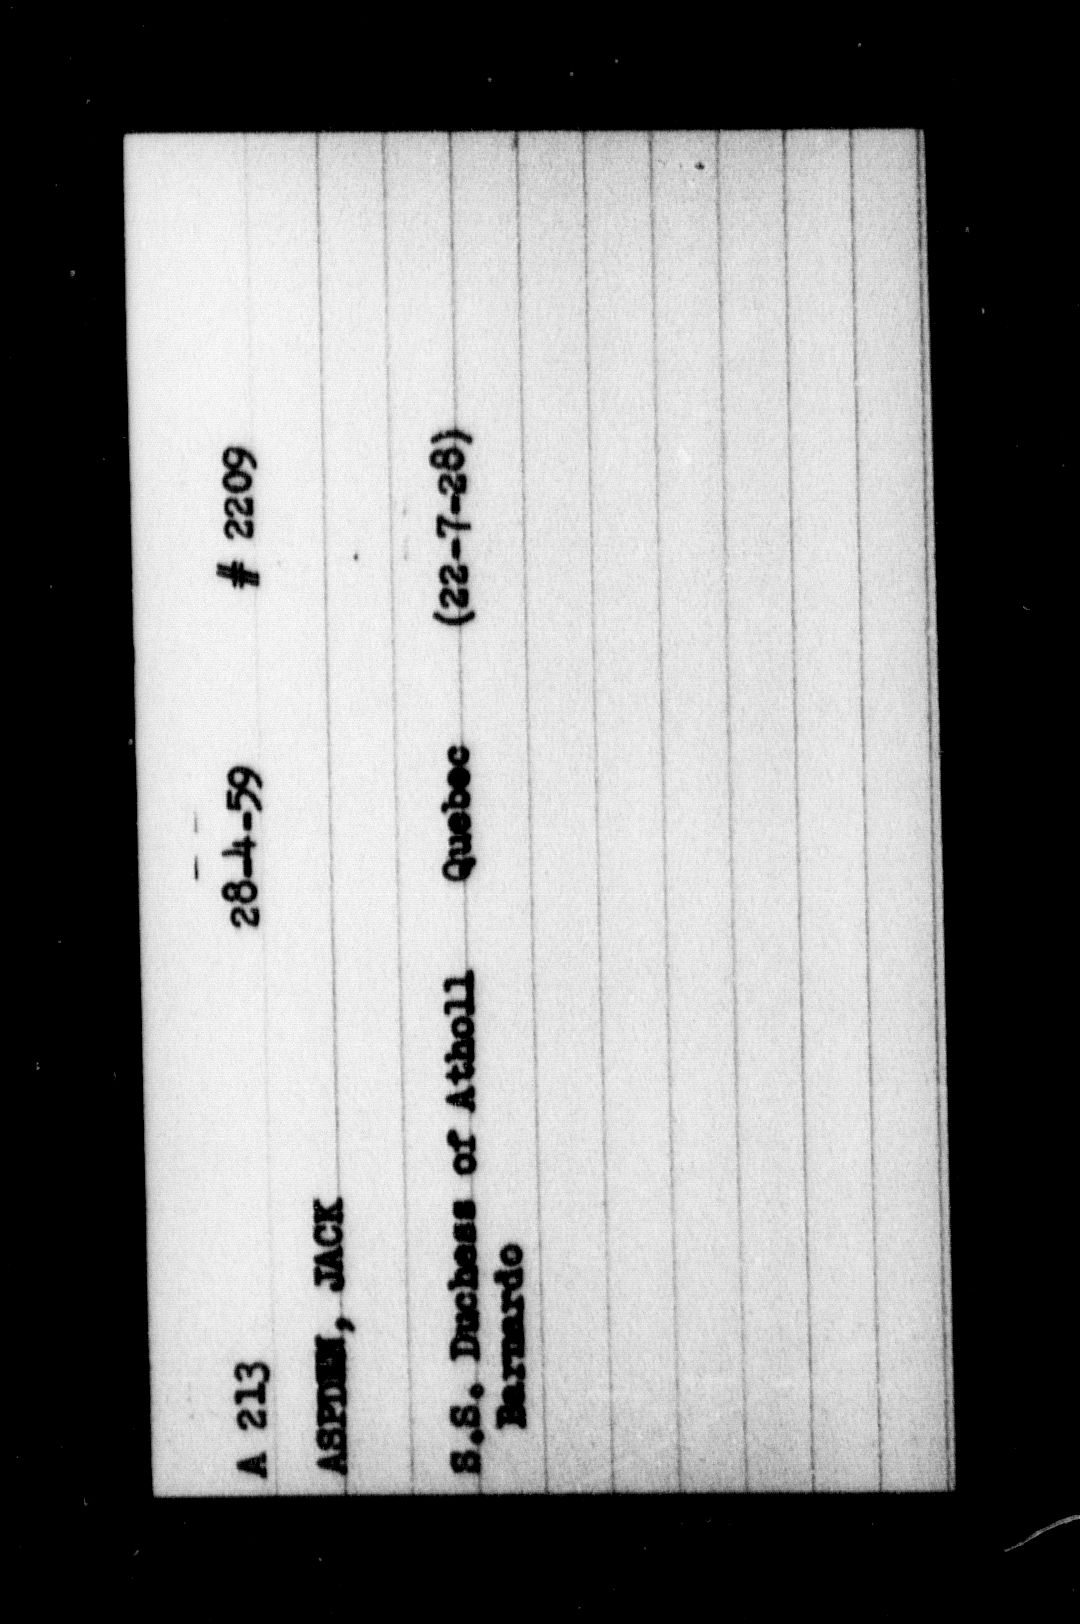 A 213 28-4-59 # 2209
ASPDEN, JACK
S.S. Duchess of Atholl Quebec (22-7-28)
Barnardo